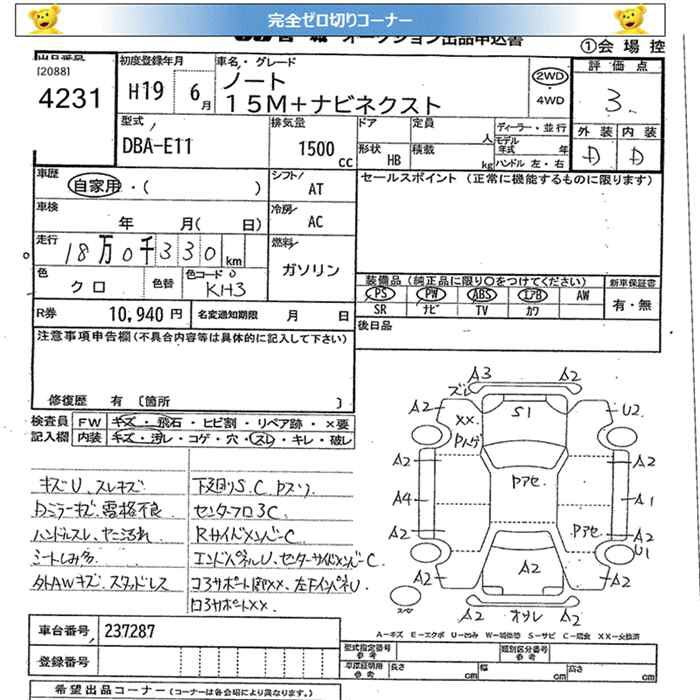 完全ゼロ切りコーナー
①会場控
[2088]
4231
初度登録年月
H19 6月
車名・グレード
ノート
15M+ナビネクスト
2WD
・
4WD
評価点
3.
外装 内装
D D
型式
DBA-E11
排気量
1500 cc
ドア
定員 人
形状 HB
積載 kg
ディーラー・並行
モデル年式 年
ハンドル 左・右
車歴
自家用・( )
シフト/
AT
セールスポイント (正常に機能するものに限ります)
車検
年 月( 日)
冷房/
AC
走行
18万0千330km
燃料/
ガソリン
色
クロ
色替
色コード
KH3
装備品(純正品に限り○をつけてください)
新車保証書
PS PW ABS エアB AW
SR ナビ TV カワ
有・無
R券 10,940円
名変通知期限 月 日
後日品
注意事項申告欄(不具合内容等は具体的に記入して下さい)
修復歴 有 [箇所 ]
検査員記入欄
FW キズ・飛石・ヒビ割・リペア跡・×要
内装 キズ・汚レ・コゲ・穴・スレ・キレ・破レ
キズU、スレキズ
ハンドルスレ、ヤニ汚れ
シートしみ多
外AWキズ、スタッドレス
下廻りS.C
センターフロアC
RサイドメンバーC
エンドパネルU、センターサイドメンバーC
A3 A2
ズレ
A2 S1 U2
XX
A2 A2
Pアセ
A4 A1
A2 Pアセ A2
U1
A2 A2 A2
A2 A2
A-キズ E-エクボ U-凹み W-補修跡 S-サビ C-腐食 XX-交換済
車台番号 237287
登録番号
型式指定番号 参考
類別区分番号 参考
車庫証明用 参考
長さ cm
幅 cm
高さ cm
希望出品コーナー(コーナーは各会場により異なります。)